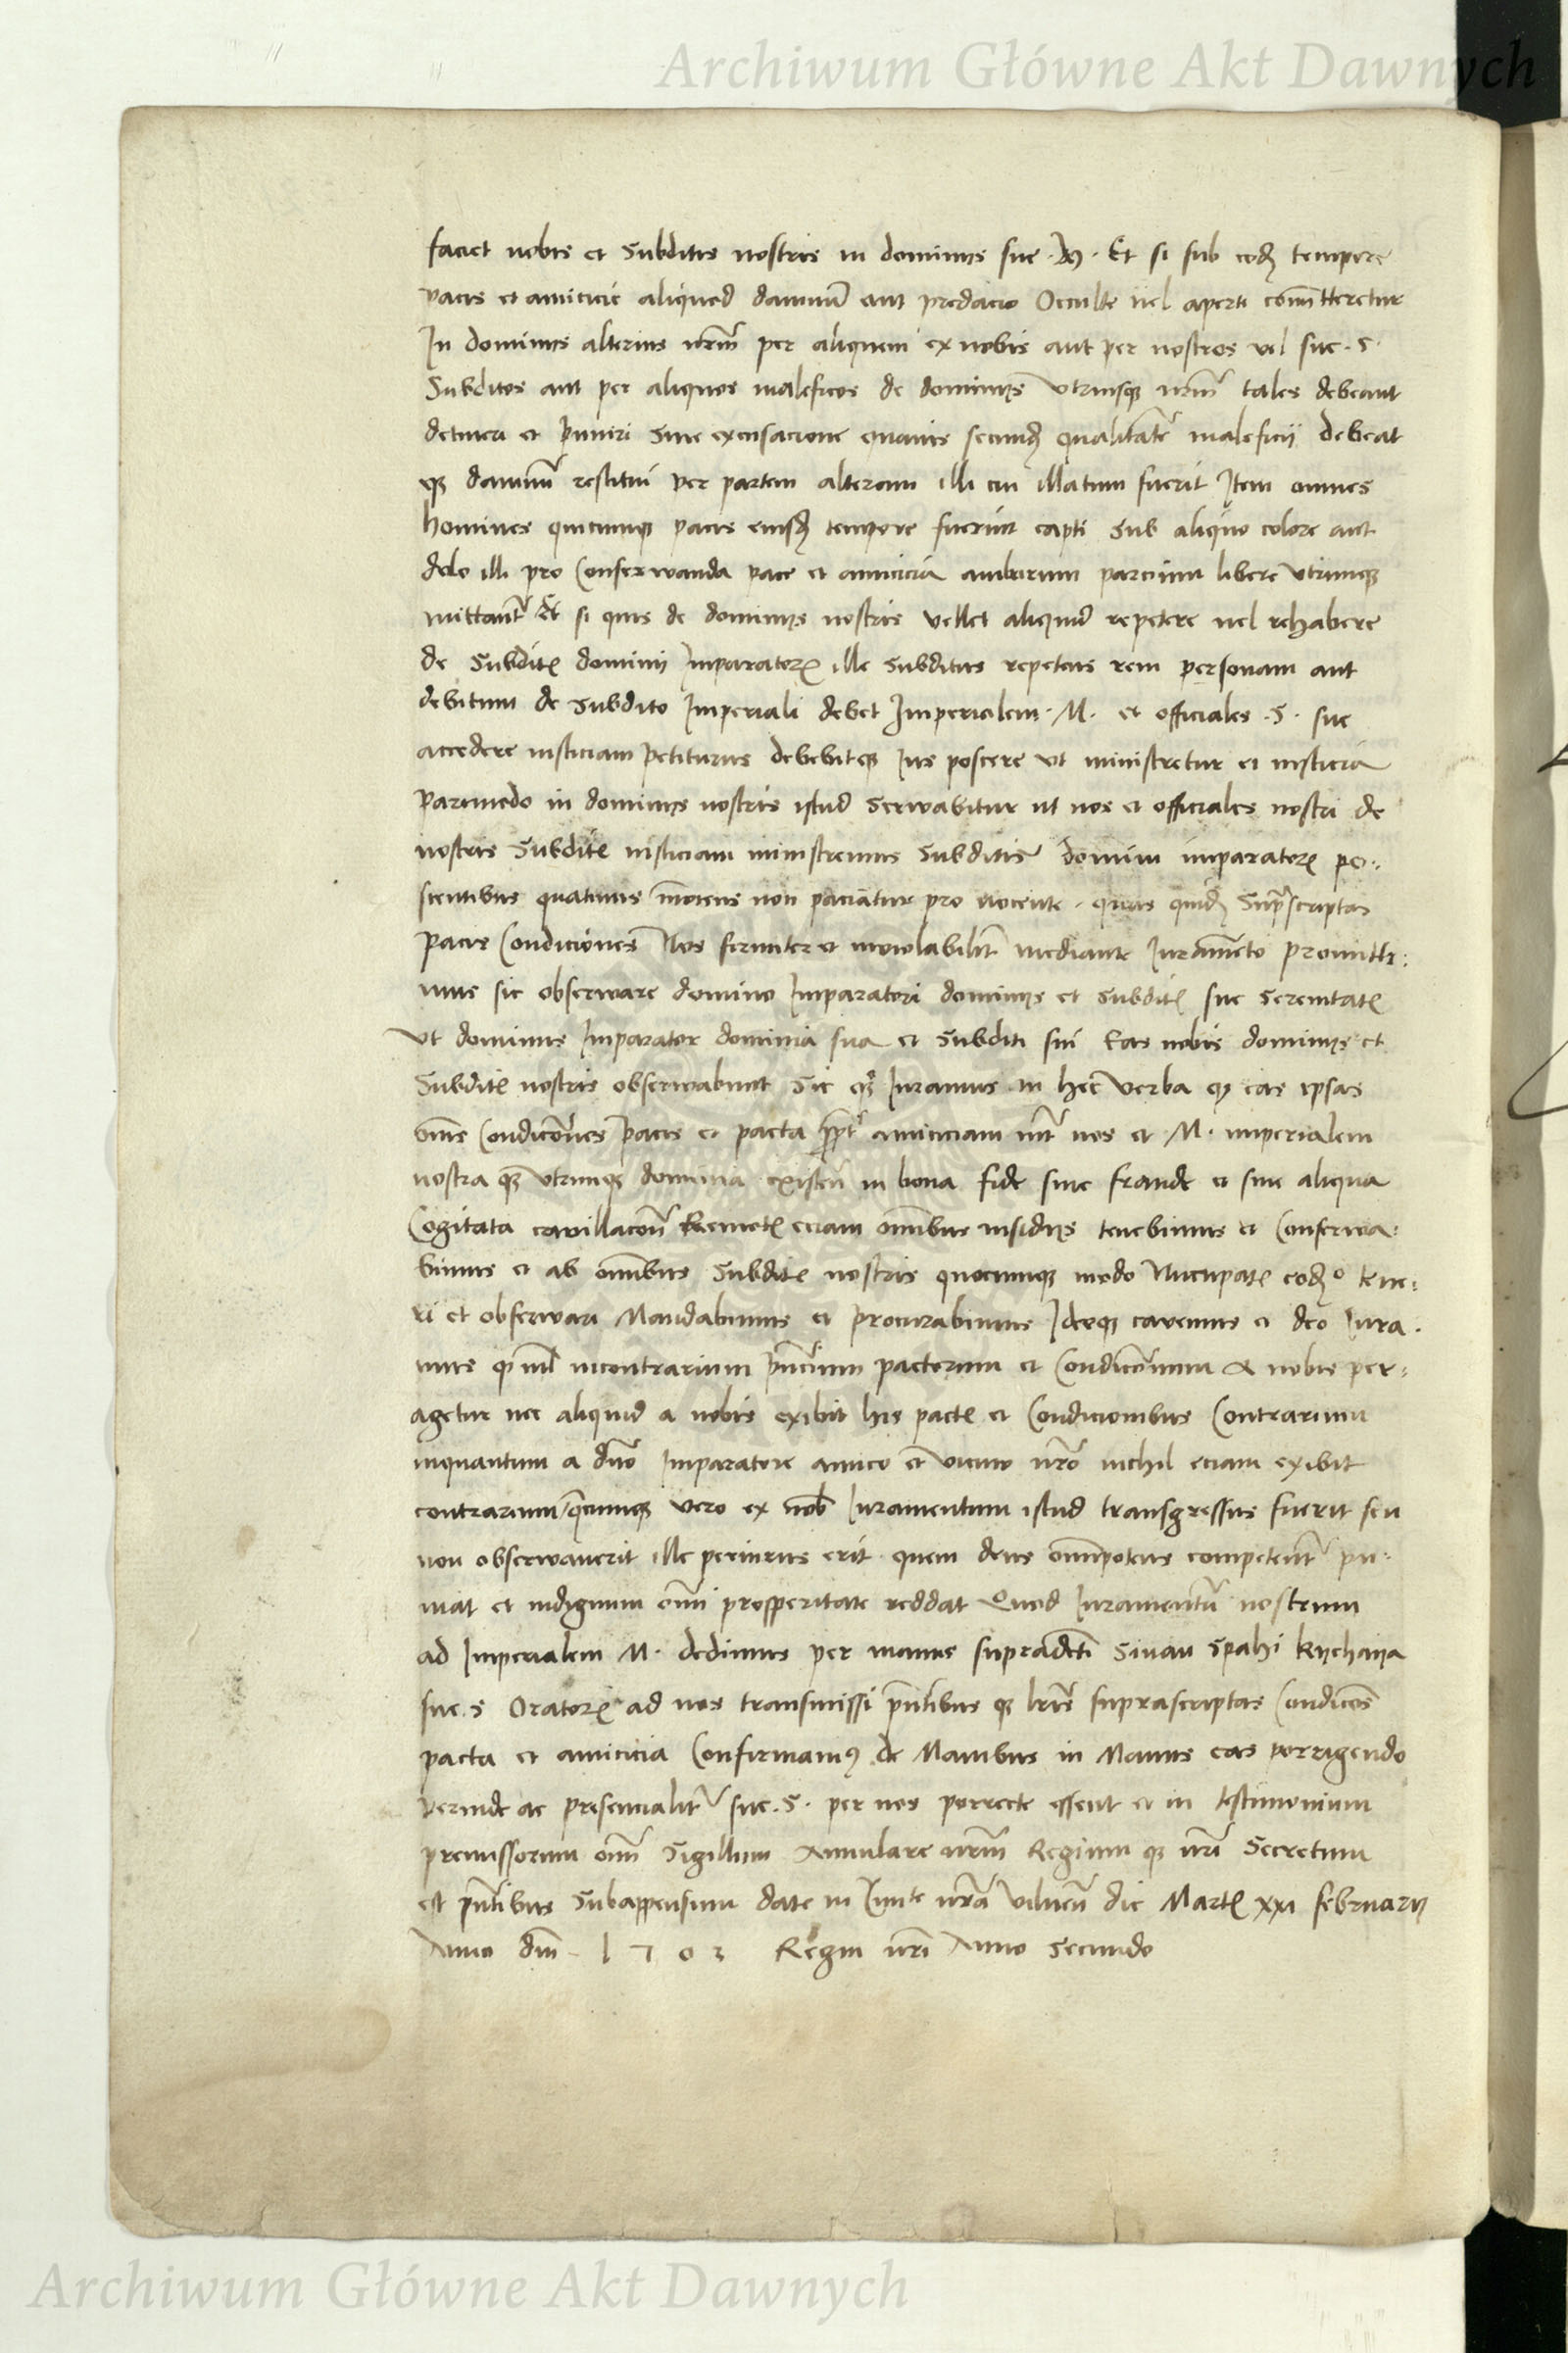 Archiwum Główne Akt Dawnych
faciet nobis et Subditis nostris in dominiis sue . M . Et si sub eodẽ tempore
pacis et amicicie aliquod damnũ aut predacio Occulte uel aperte com̃itteretur
In dominiis alterius nr̃m per aliquem ex nobis aut per nostros vel sue . S .
Subditos aut per aliquos maleficos de dominiis Utriusq nr̃m tales debeant
detineri et puniri Sine excusacione quauis secundũ qualitatẽ maleficii debeat
q damnũ restitui per partem alteram illi cui illatum fuerit Item omnes
homines quicumq pacis eiusdẽ tempore fuerint capti Sub aliquo colore aut
dolo illi pro Conserwanda pace et amicicia ambarum parcium libere Utrimq
mittant̃ Et si quis de dominiis nostris vellet aliquid repetere uel rehabere
de Subdit dominii Imparator ille Subditus repetens rem personam aut
debitum de Subdito Imperiali debet Imperialem . M . et officiales . S . sue
accedere iusticiam petiturus debebitq Ius poscere ut ministretur ei iusticia
parimodo in dominiis nostris istud Serwabitur ut nos et officiales nostri de
nostris Subdit iusticiam ministremus Subditis domini imparator po-
scentibus quatinus in̄ocens non paciatur pro nocente . quas quidẽ Supr̃scriptas
Pacis Condiciones Nos firmiter et inviolabilit̃ mediante Iuram̃eto promitti:
mus sic obserware domino Imparatori dominiis et Subdit sue Serenitat
Ut dominus Imparator dominia sua et Subditi sui Eas nobis dominiis et
Subdit nostris obserwabunt Sic q Iuramus in hec verba q eas ipsas
om̃es Condicõnes Pacis et pacta amiciciam int̃ nos et M . imperialem
nostra q utrimq dominia existeñ in bona fide sine fraude et sine aliqua
Cogitata cavillacoñ eciam om̃ibus insidiis tenebimus et Conserwa-
bimus et ab om̃ibus Subdit nostris quocumq modo Nuncupat eodẽo tene-
ri et obserwari Mandabimus et procurabimus Ideoq cavemus et deo Iura .
mus q nil incontrarium pactorum et Condicõnum A nobis per-
agetur nec aliquid a nobis exibit his pact et Condicionibus Contrarium
inquantum a dño Imparatore amico et vicino nr̃o nichil eciam exibit
contrarium quicumq vero ex nob̃ Iuramentum istud transgressus fuerit seu
non obserwaverit ille periurus erit quem deus om̃ipotens competent̃ pu-
niat et indignum om̃i prosperitate reddat Quod Iuramentũ nostrum
ad Imperialem M . dedimus per manus supradc̃ti Sinan Spahi Kyehaya
sue . S Orator ad nos transmissi pñtibus q lr̃is suprascriptas Condicões
pacta et amicicia Confirmamus de Manibus in Manus eas porrigendo
perinde ac presencialit̃ sue . S . per nos porrecte essent et in testimonium
premissorum om̃ Sigillum Annulare nr̃m Regium q nr̃i Secretum
est pñtibus Subappensum date in nr̃a vilneñ die Mart xxi februarii
Anno dñi 1503 Regni nr̃i Anno Secundo
Archiwum Główne Akt Dawnych